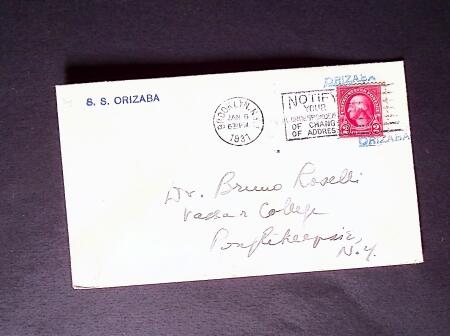 S. S. ORIZABA
ORIZABA
BROOKLYN, N.Y.
JAN 6
6 PM
1931
NOTIFY
YOUR
CORRESPONDENTS
OF CHANGE
OF ADDRESS
2 2
ORIZABA
Dr. Bruno Roselli
Vassar College
Poughkeepsie,
N.Y.